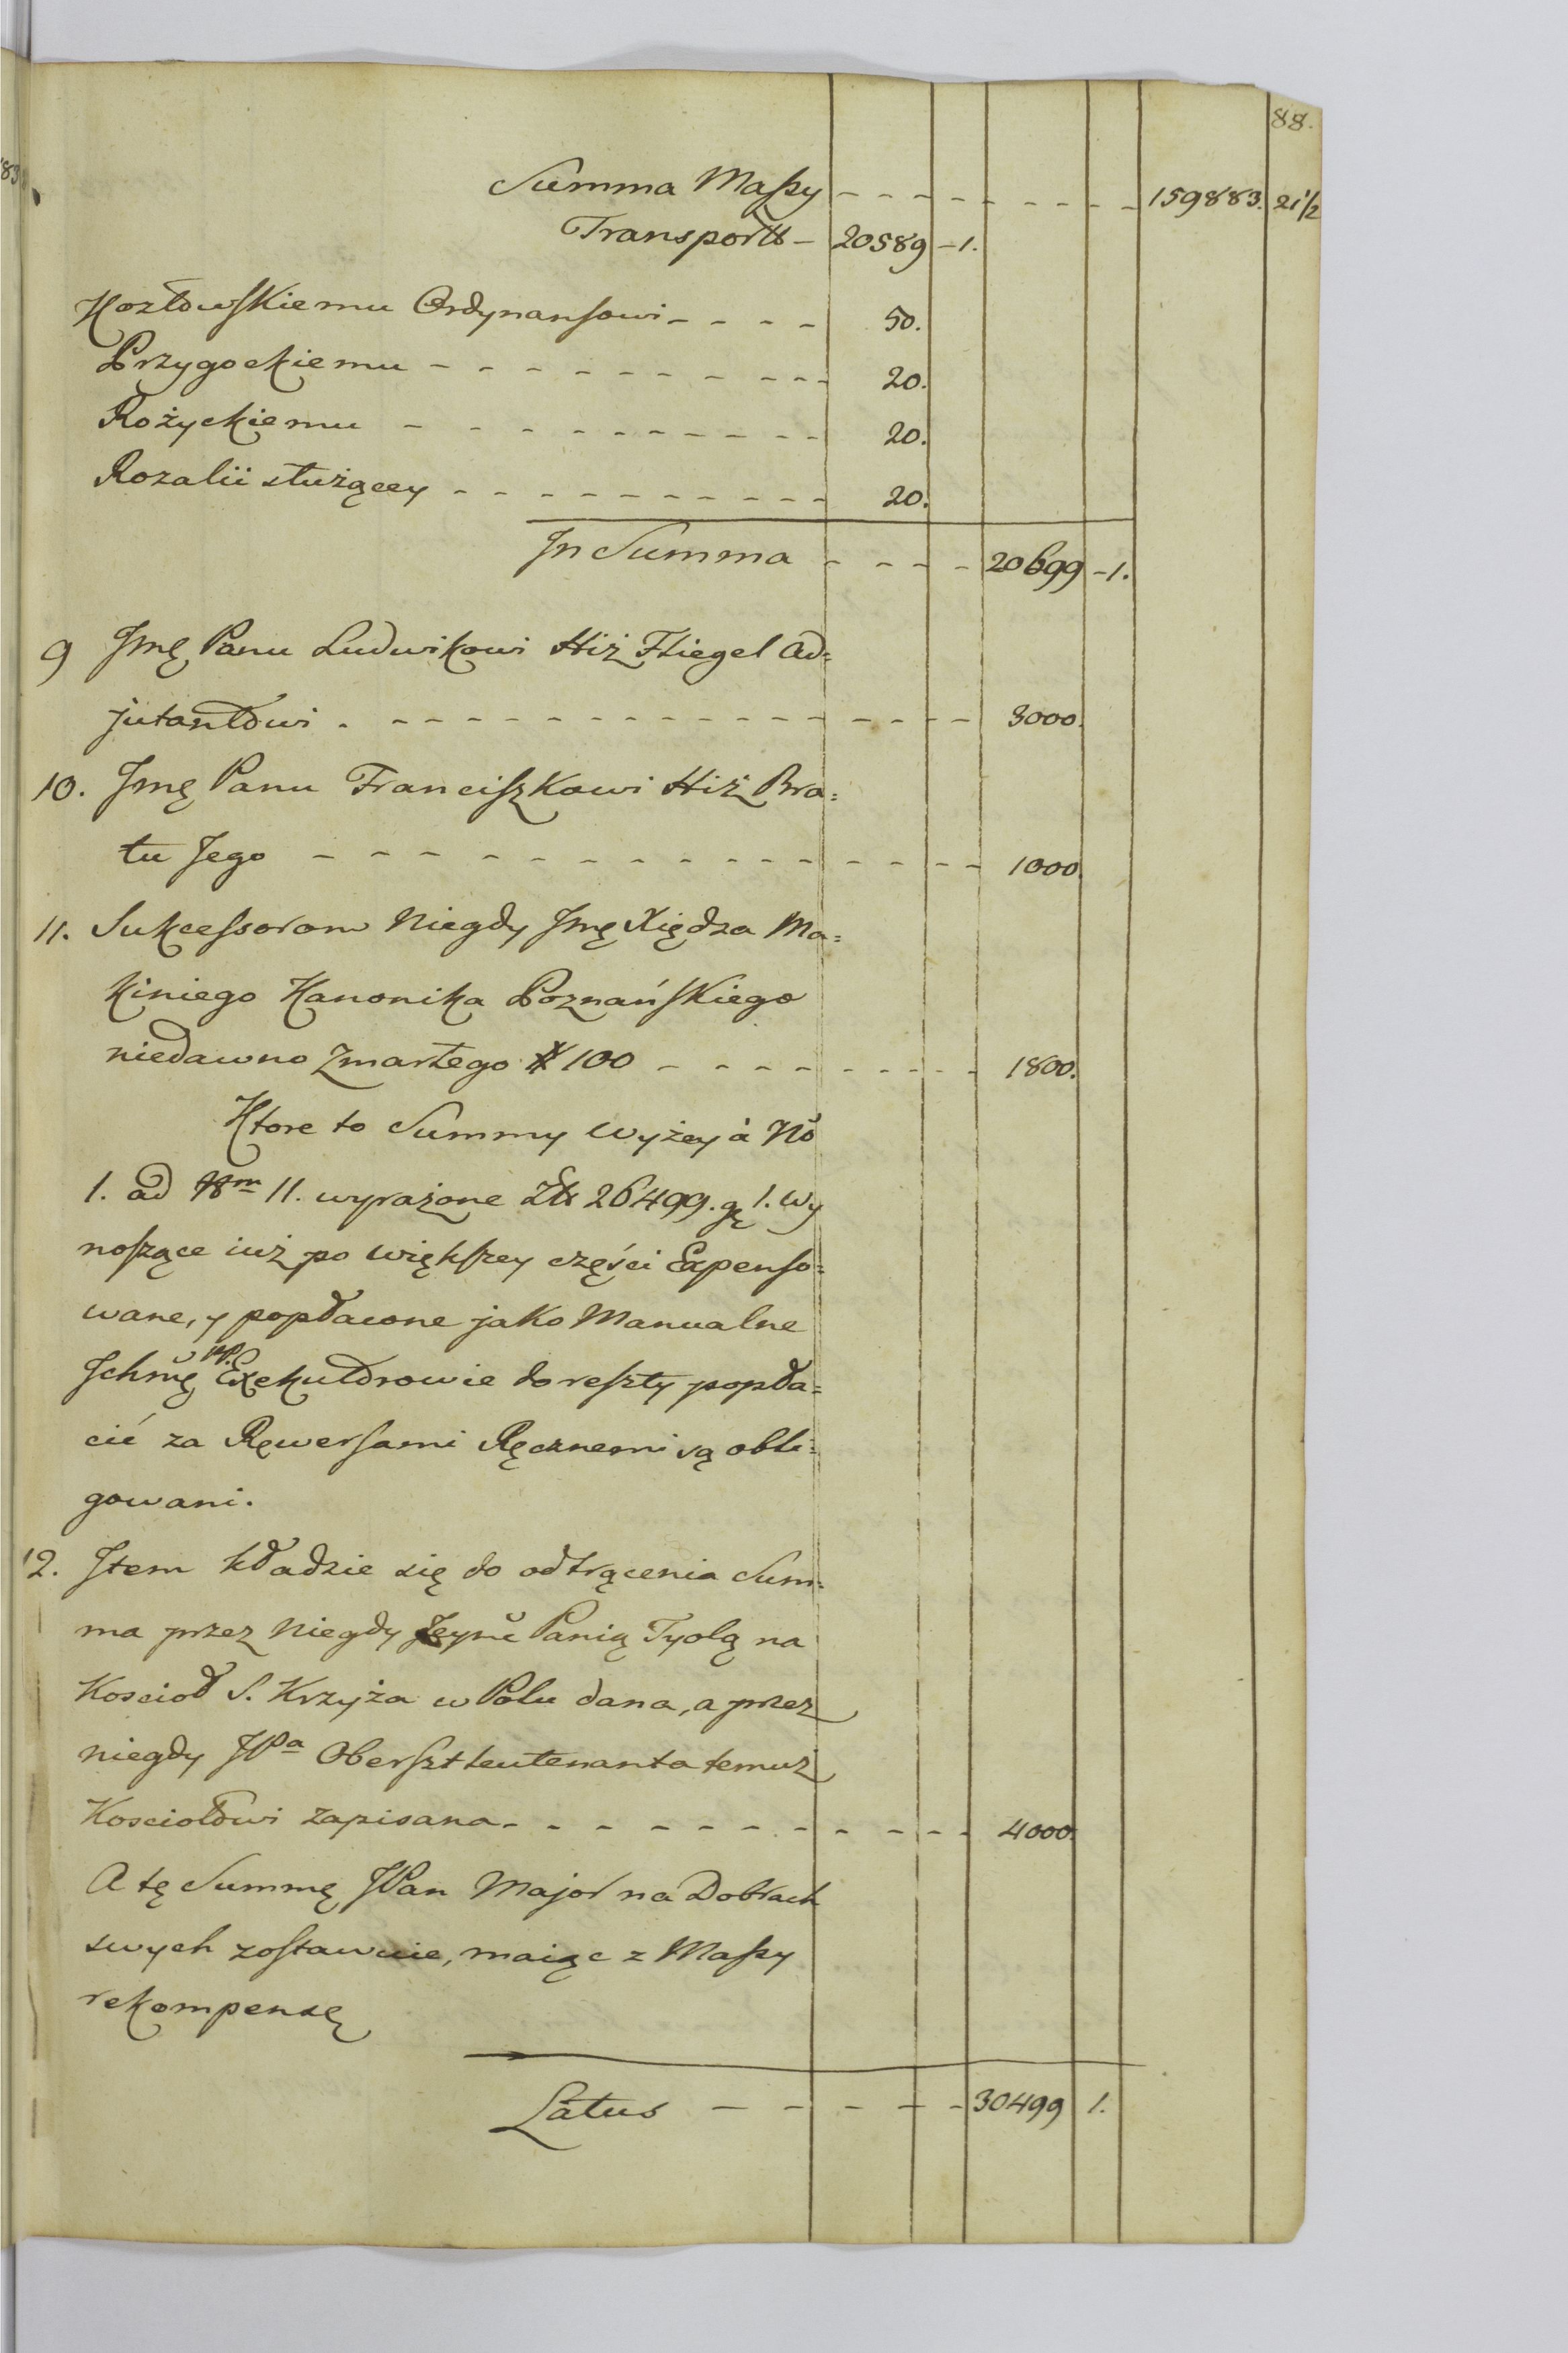 88.
Summa Massy - - - - - - - - - 159883. 21½
Transportt - 20589 - 1.
Kozłowskiemu Ordynansowi - - - - 50.
Przygockiemu - - - - - - - - - 20.
Rożyckiemu - - - - - - - - - - 20.
Rozalii służącey - - - - - - - - - - 20.
In Summa - - - - 20699 - 1.
9 Jmę Panu Ludwikowi Hiż Fliegel Ad=
jutantowi . - - - - - - - - - - - - - - 3000.
10. Jmę Panu Franciszkowi Hiż Bra=
tu Jego - - - - - - - - - - - - - - 1000.
11. Sukcessorom Niegdy Jmę Xiędza Ma=
kiniego Kanonika Poznańskiego
niedawno Zmarłego # 100 - - - - - - - - 1800.
Ktore to Summy wyżey à Nō
1. ad Nm 11. wyrażone Złł 26499. gę 1. wy
noszące iuż po większey części Expenso=
wane, y popłacone jako Manualne
Jchmę PP. Exekutorowie do reszty popła=
cić za Rewersami Ręcznemi są obli=
gowani.
12. Jtem kładzie się do odtrącenia Sum=
ma przez Niegdy Jeymć Panią Tyolą na
Kościoł S. Krzyża w Polu dana, a przez
niegdy JPa Obersztleutenanta temuż
Kosciołowi zapisana - - - - - - - - - - 4000.
A tę Summę JPan Major na Dobrach
swych zostawuie, maiąc z Massy
rekompensę
Latus - - - - - 30499 1.